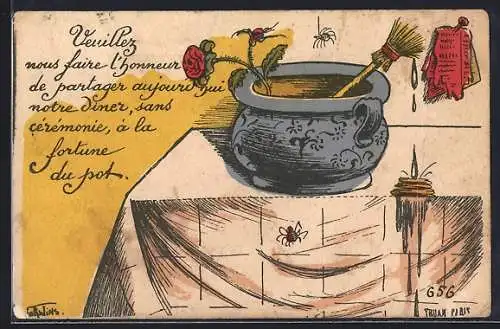 Veuillez
nous faire l'honneur
de partager aujourd'hui
notre dîner, sans
cérémonie, à la
fortune
du pot.
656
PARIS